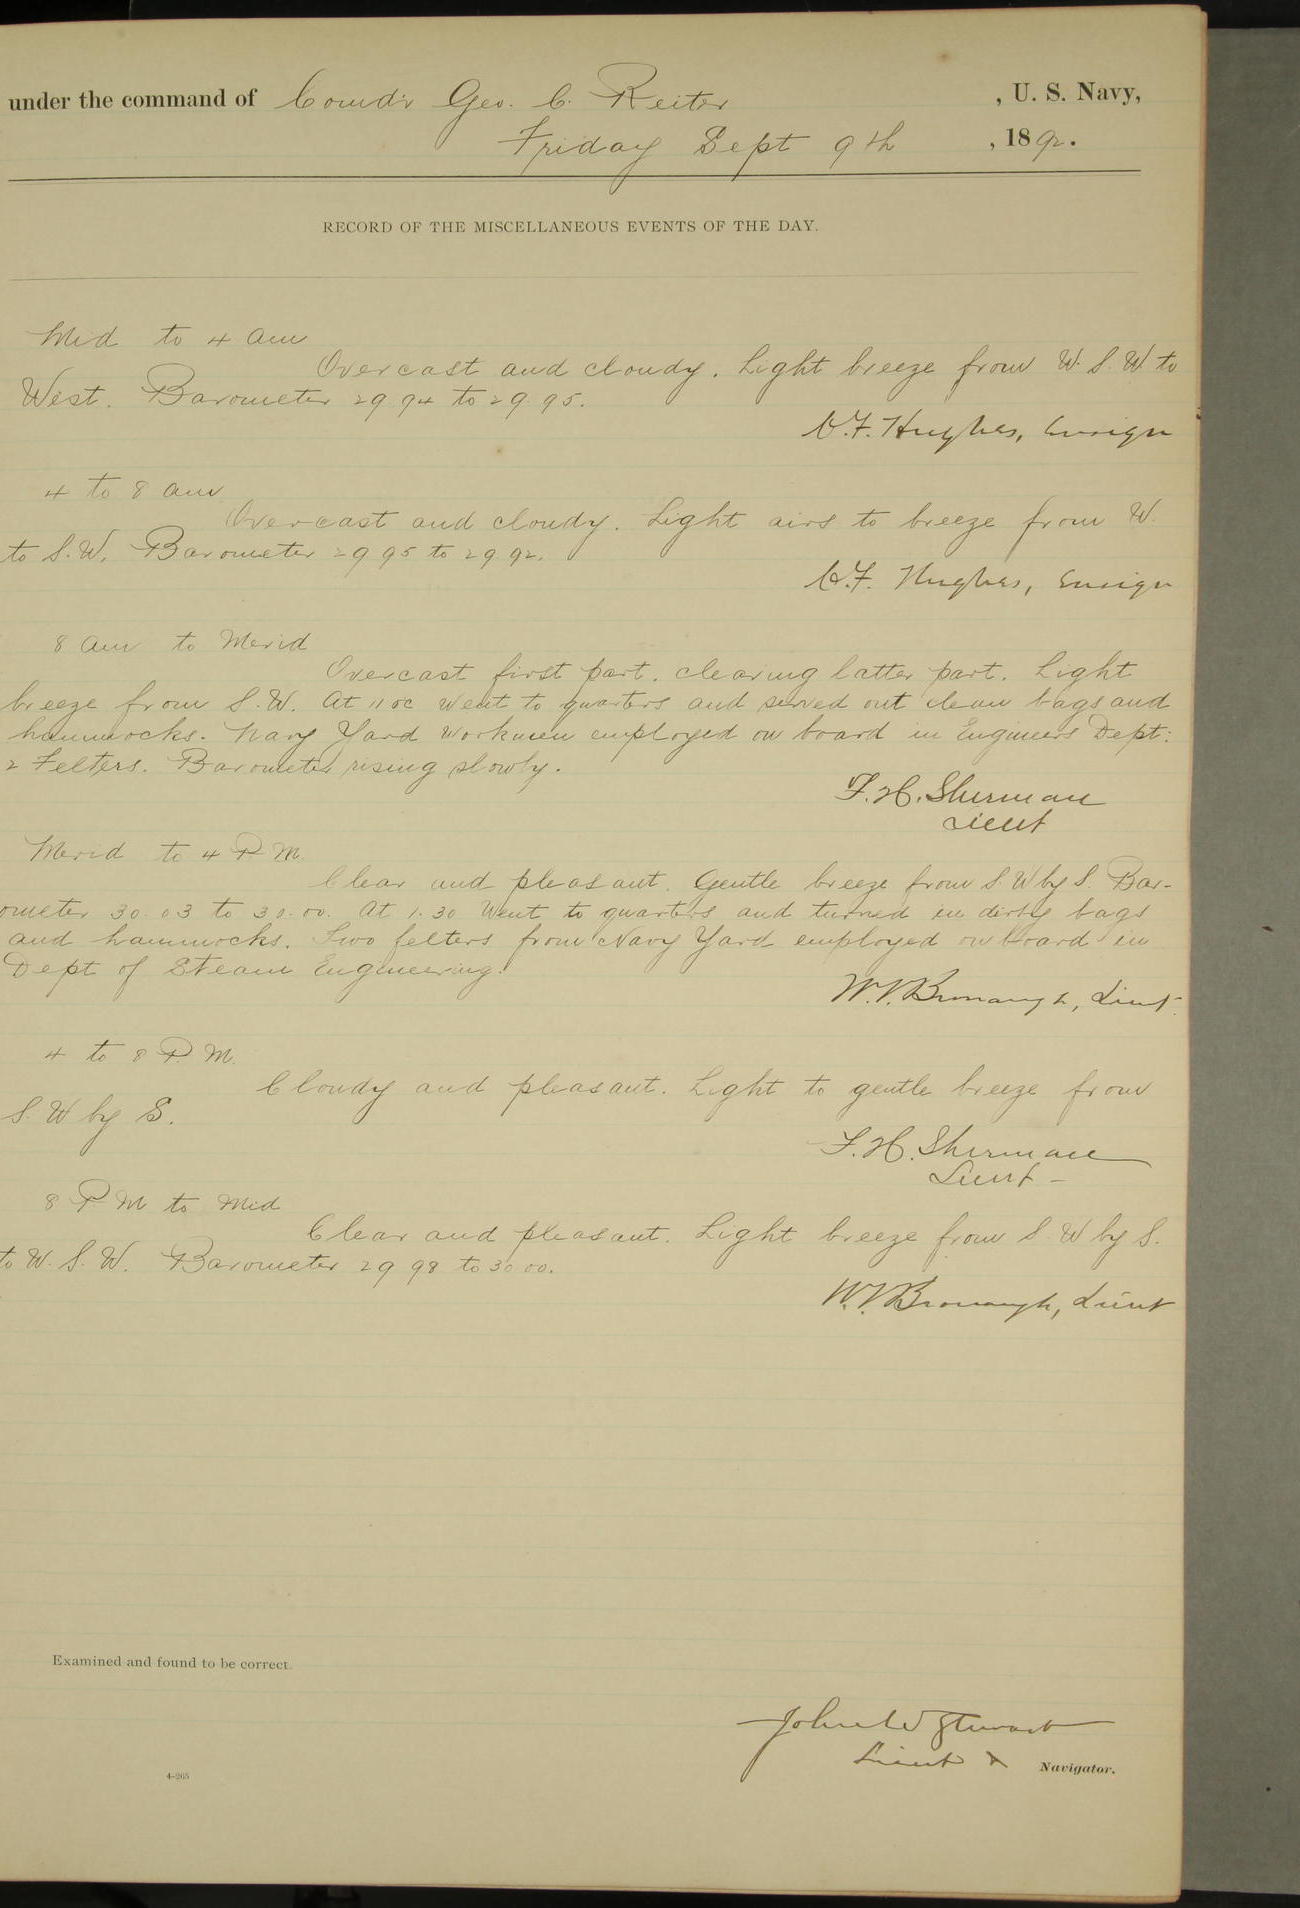 under the command of Comd'r Geo. C. Reiter , U. S. Navy,
Friday Sept 9th , 1892.
RECORD OF THE MISCELLANEOUS EVENTS OF THE DAY.
Mid to 4 am
Overcast and cloudy. Light breeze from W. S. W. to
West. Barometer 29 94 to 29.95.
C.F. Hughes, Ensign
4 to 8 am
Overcast and cloudy. Light airs to breeze from W.
to S.W. Barometer 29 95 to 29.92.
C.F. Hughes, Ensign
8 am to Merid
Overcast first part. clearing latter part. Light
breeze from S.W. At 11 oc went to quarters and served out clean bags and
hammocks. Navy Yard workmen employed on board in Engineers Dept:
2 Felters. Barometer rising slowly.
F. H. Sherman
Lieut
Merid to 4 P. M.
Clear and pleasant. Gentle breeze from S. W by S. Bar-
ometer 30.03 to 30.00. At 1.30 Went to quarters and turned in dirty bags
and hammocks. Two felters from Navy Yard employed on board in
Dept of Steam Engineering.
W. V. Bronaugh, Lieut.
4 to 8 P. M.
Cloudy and pleasant. Light to gentle breeze from
S. W by S.
F. H. Sherman
Lieut -
8 P M to Mid
Clear and pleasant. Light breeze from S. W by S.
to W. S. W. Barometer 29 98 to 30 00.
W. V. Bronaugh, Lieut
Examined and found to be correct.
John W Stewart
Lieut & Navigator.
4-265